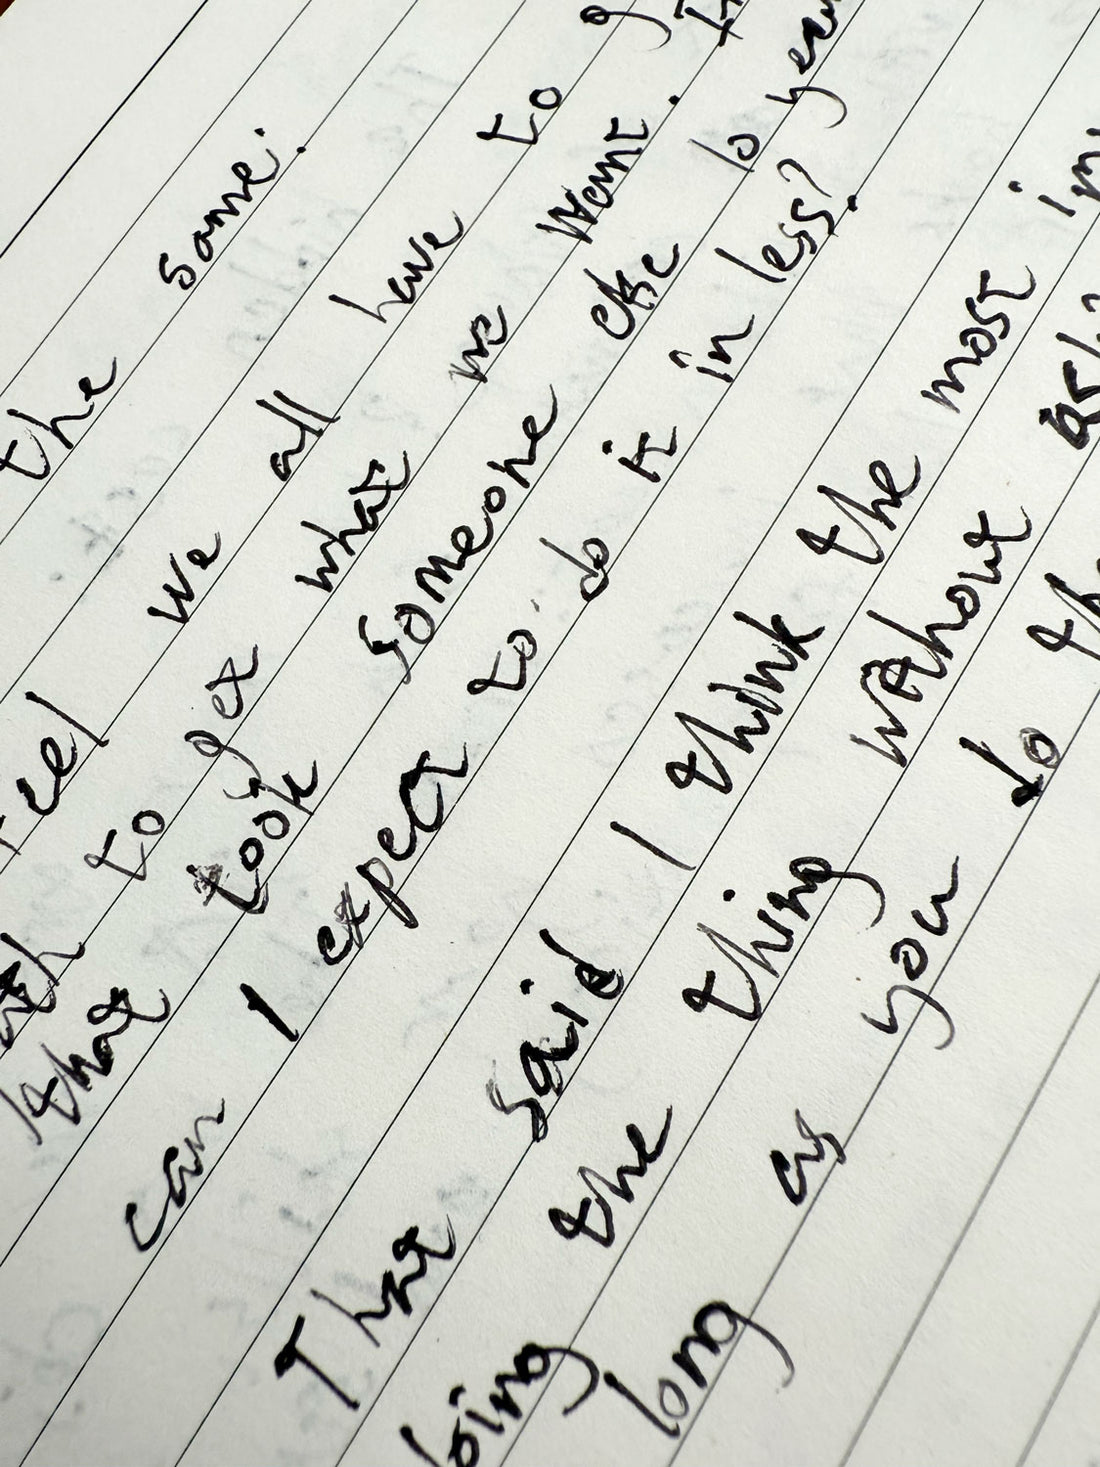 the same.
feel we all have to g
path to get what we want. It
that took someone else 10 year
can I expect to do it in less?
That said I think the most im
doing the thing without ask
long as you do th